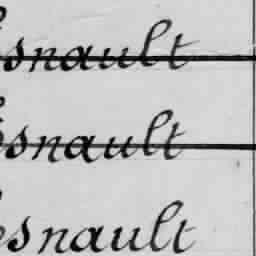 esnault
esnault
esnault